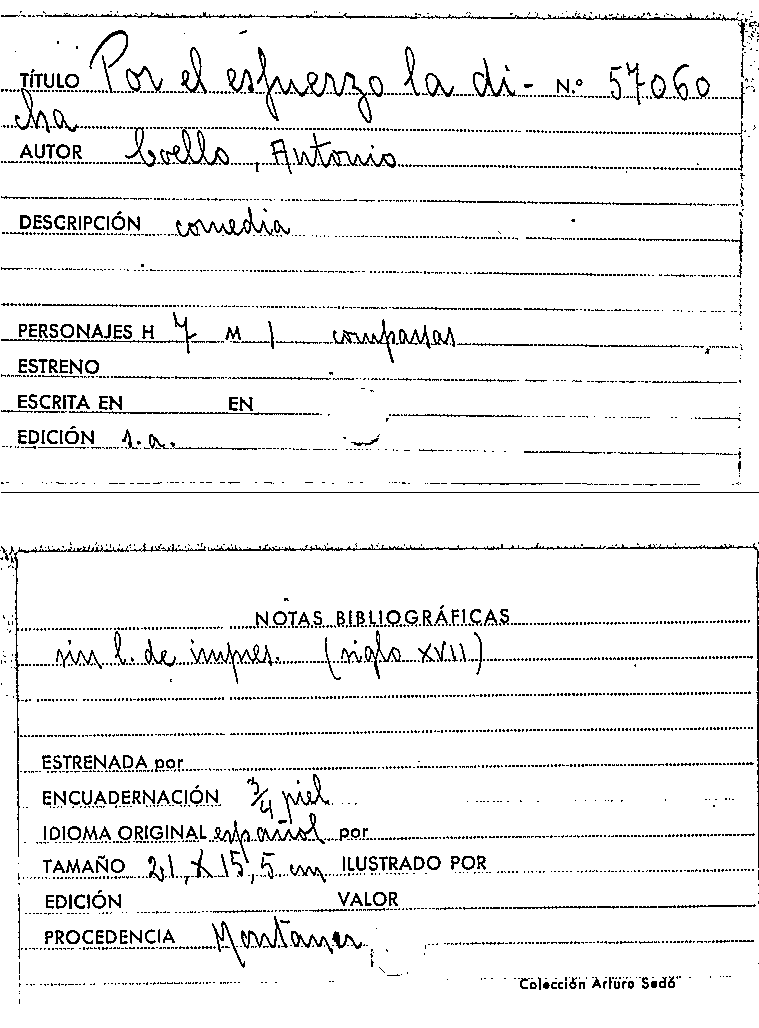 TÍTULO Por el esfuerzo la di- N.º 57060
cha
AUTOR Coello, Antonio
DESCRIPCIÓN comedia
PERSONAJES H 7 M 1 comparsas
ESTRENO
ESCRITA EN EN
EDICIÓN s.a.
NOTAS BIBLIOGRÁFICAS
sin l. de impres. (siglo XVII)
ESTRENADA por
ENCUADERNACIÓN 3/4 piel
IDIOMA ORIGINAL español por
TAMAÑO 21, X 15,5 cm ILUSTRADO POR
EDICIÓN VALOR
PROCEDENCIA Montaner
Colección Arturo Sedó